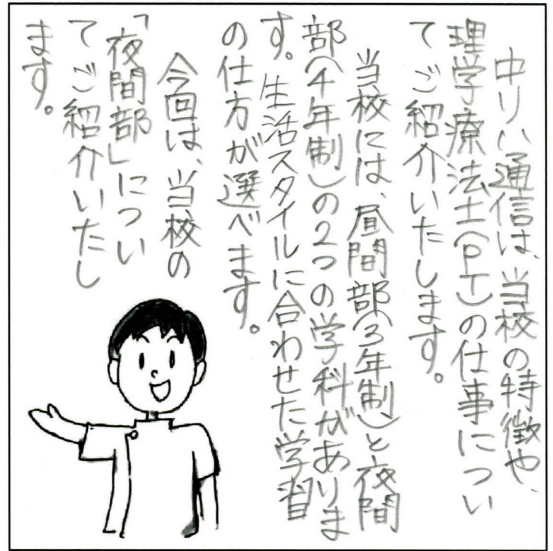 中リハ通信は、当校の特徴や、
理学療法士(PT)の仕事につい
てご紹介いたします。
当校には、昼間部(3年制)と夜間
部(4年制)の2つの学科がありま
す。生活スタイルに合わせた学習
の仕方が選べます。
今回は、当校の
「夜間部」につい
てご紹介いたし
ます。